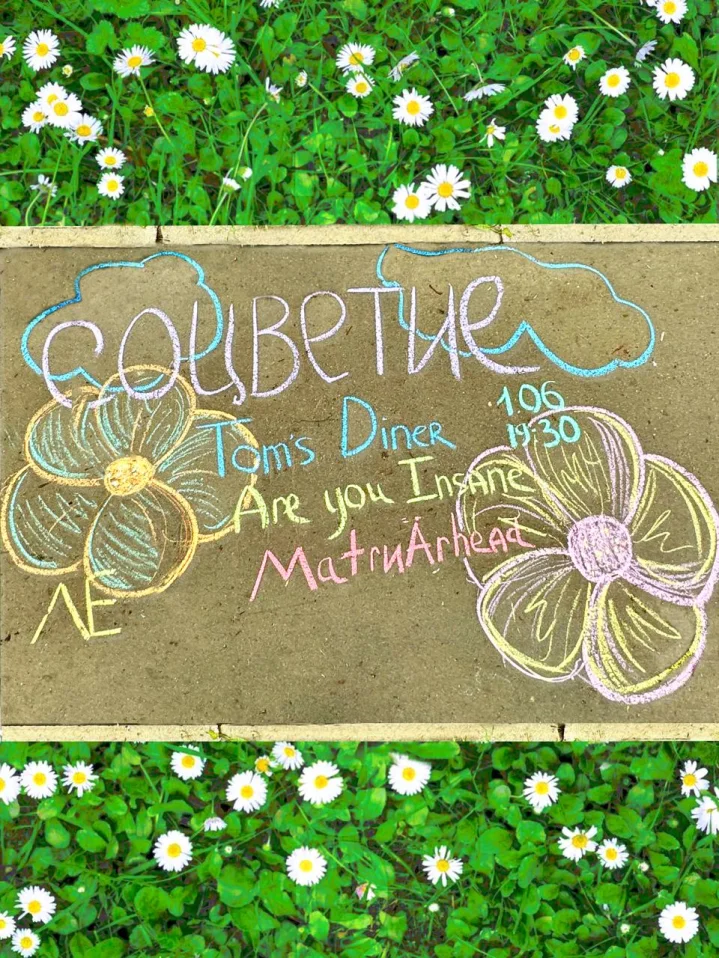 Соцветие
1.06
Tom's Diner 19:30
Are you Insane
MatruÄrhead
ΛE